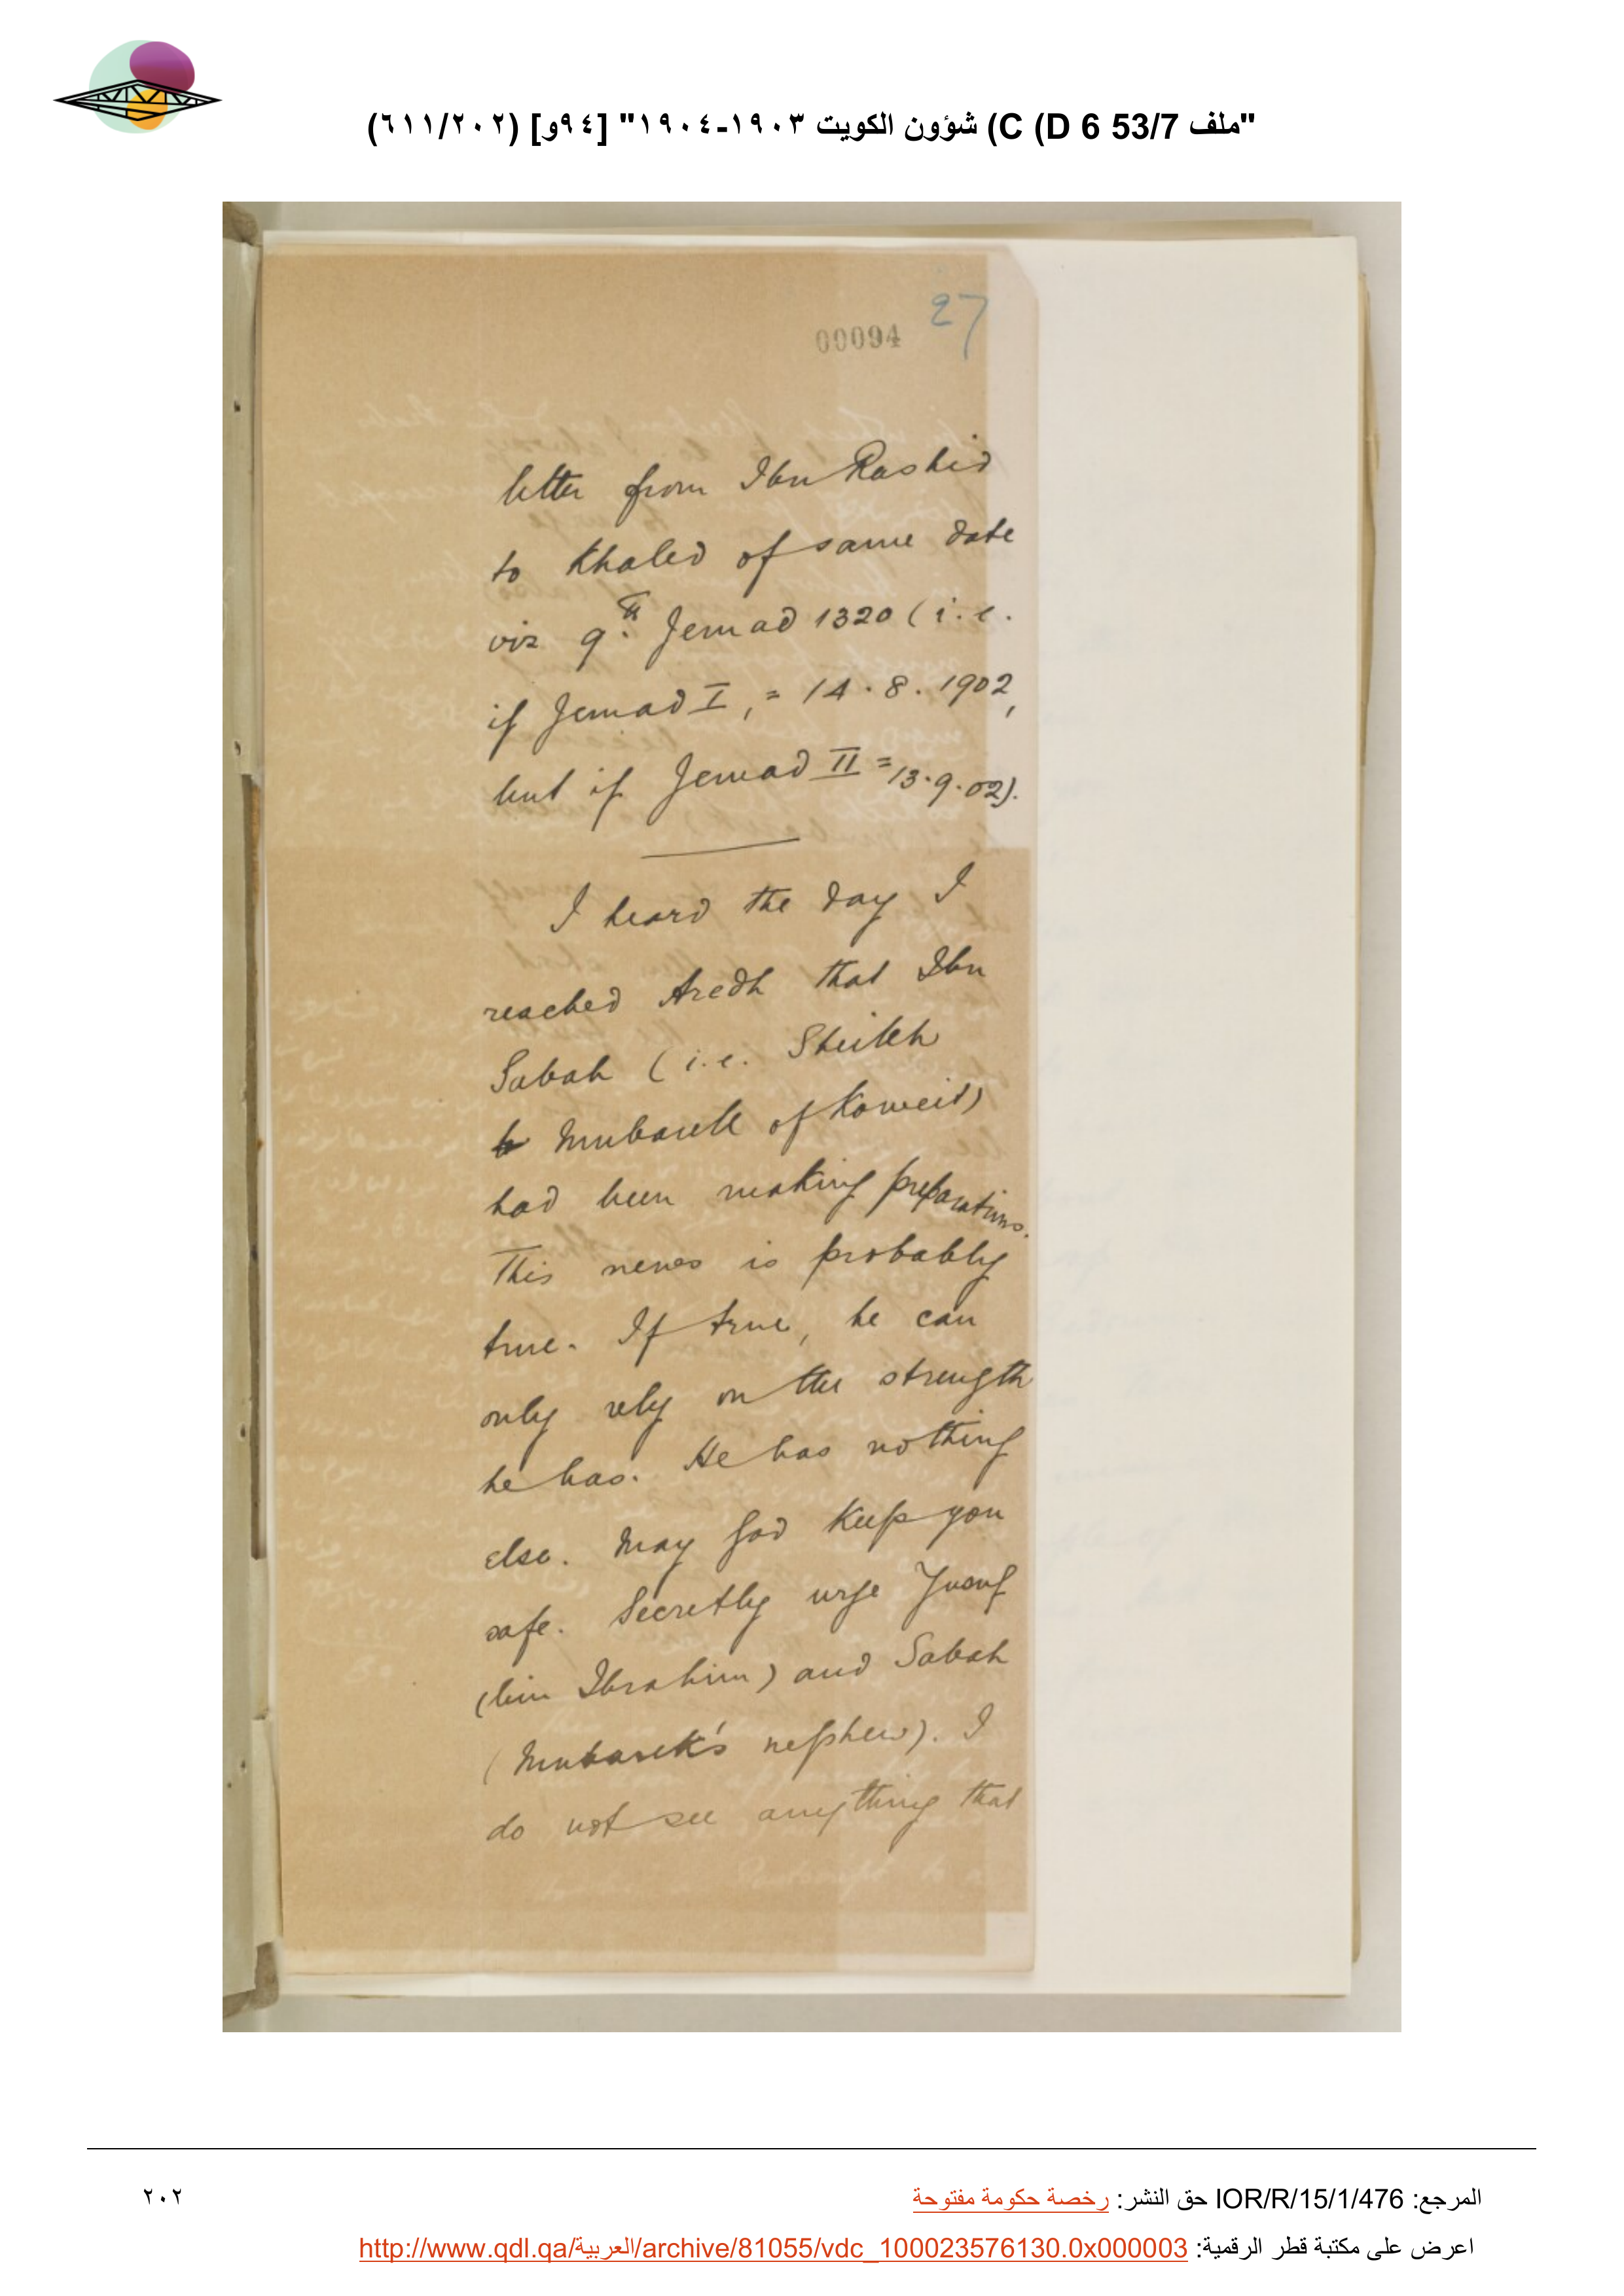 "ملف 53/7 D 6) C) شؤون الكويت ١٩٠٣-١٩٠٤" [٩٤و] (٦١١/٢٠٢)
27
00094
letter from Ibn Rashid
to Khaled of same date
viz 9th Jemad 1320 (i.e.
if Jemad I, = 14.8.1902,
but if Jemad II = 13.9.02).
I heard the day I
reached Aredh that Ibn
Sabah (i.e. Sheikh
Mubarek of Koweit)
had been making preparations.
This news is probably
true. If true, he can
only rely on the strength
he has. He has nothing
else. May God keep you
safe. Secretly urge Yusuf
(bin Ibrahim) and Sabah
(Mubarek's nephew). I
do not see anything that
المرجع: IOR/R/15/1/476 حق النشر: رخصة حكومة مفتوحة
٢٠٢
اعرض على مكتبة قطر الرقمية: http://www.qdl.qa/العربية/archive/81055/vdc_100023576130.0x000003